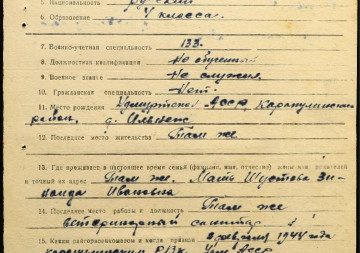 5. Национальность Русский
6. Образование 4 класса.
7. Военно-учетная специальность 133.
8. Должностная квалификация Не обученный
9. Военное звание Не служил.
10. Гражданская специальность Нет.
11. Место рождения Удмуртская АССР, Каракулинский
район, д.
12. Последнее место жительства Там же
13. Где проживает в настоящее время семья (фамилия, имя, отчество) жены или родителей
и точный их адрес Там же. Мать Шустова Зи-
наида Ивановна
14. Последнее место работы и должность Там же
ветеринарный санитар
15. Каким райгорвоенкоматом и когда призван 2 февраля 1944 года
Каракулинским РВК, Удм АССР